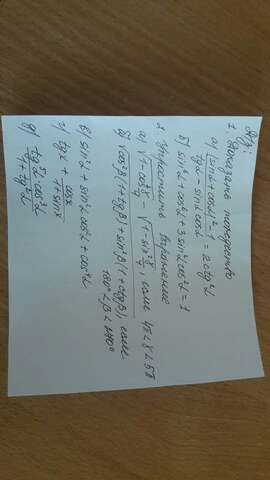 Д/з:
1. Доказать тождество
а) (sin α + cos α)² - 1 / tg α - sin α cos α = 2 ctg² α
б) sin⁶ α + cos⁶ α + 3 sin² α cos² α = 1
2. Упростить выражение
а) √1 - cos² γ/4 - √1 - sin² γ/4, если 4π < γ < 5π
б) √cos² β (1 + tg β) + sin² β (1 + ctg β), если
180° < β < 240°
в) sin² α + sin² α cos² α + cos⁴ α
г) tg x + cos x / 1 + sin x
д) tg² α cos² α / 1 + tg² α